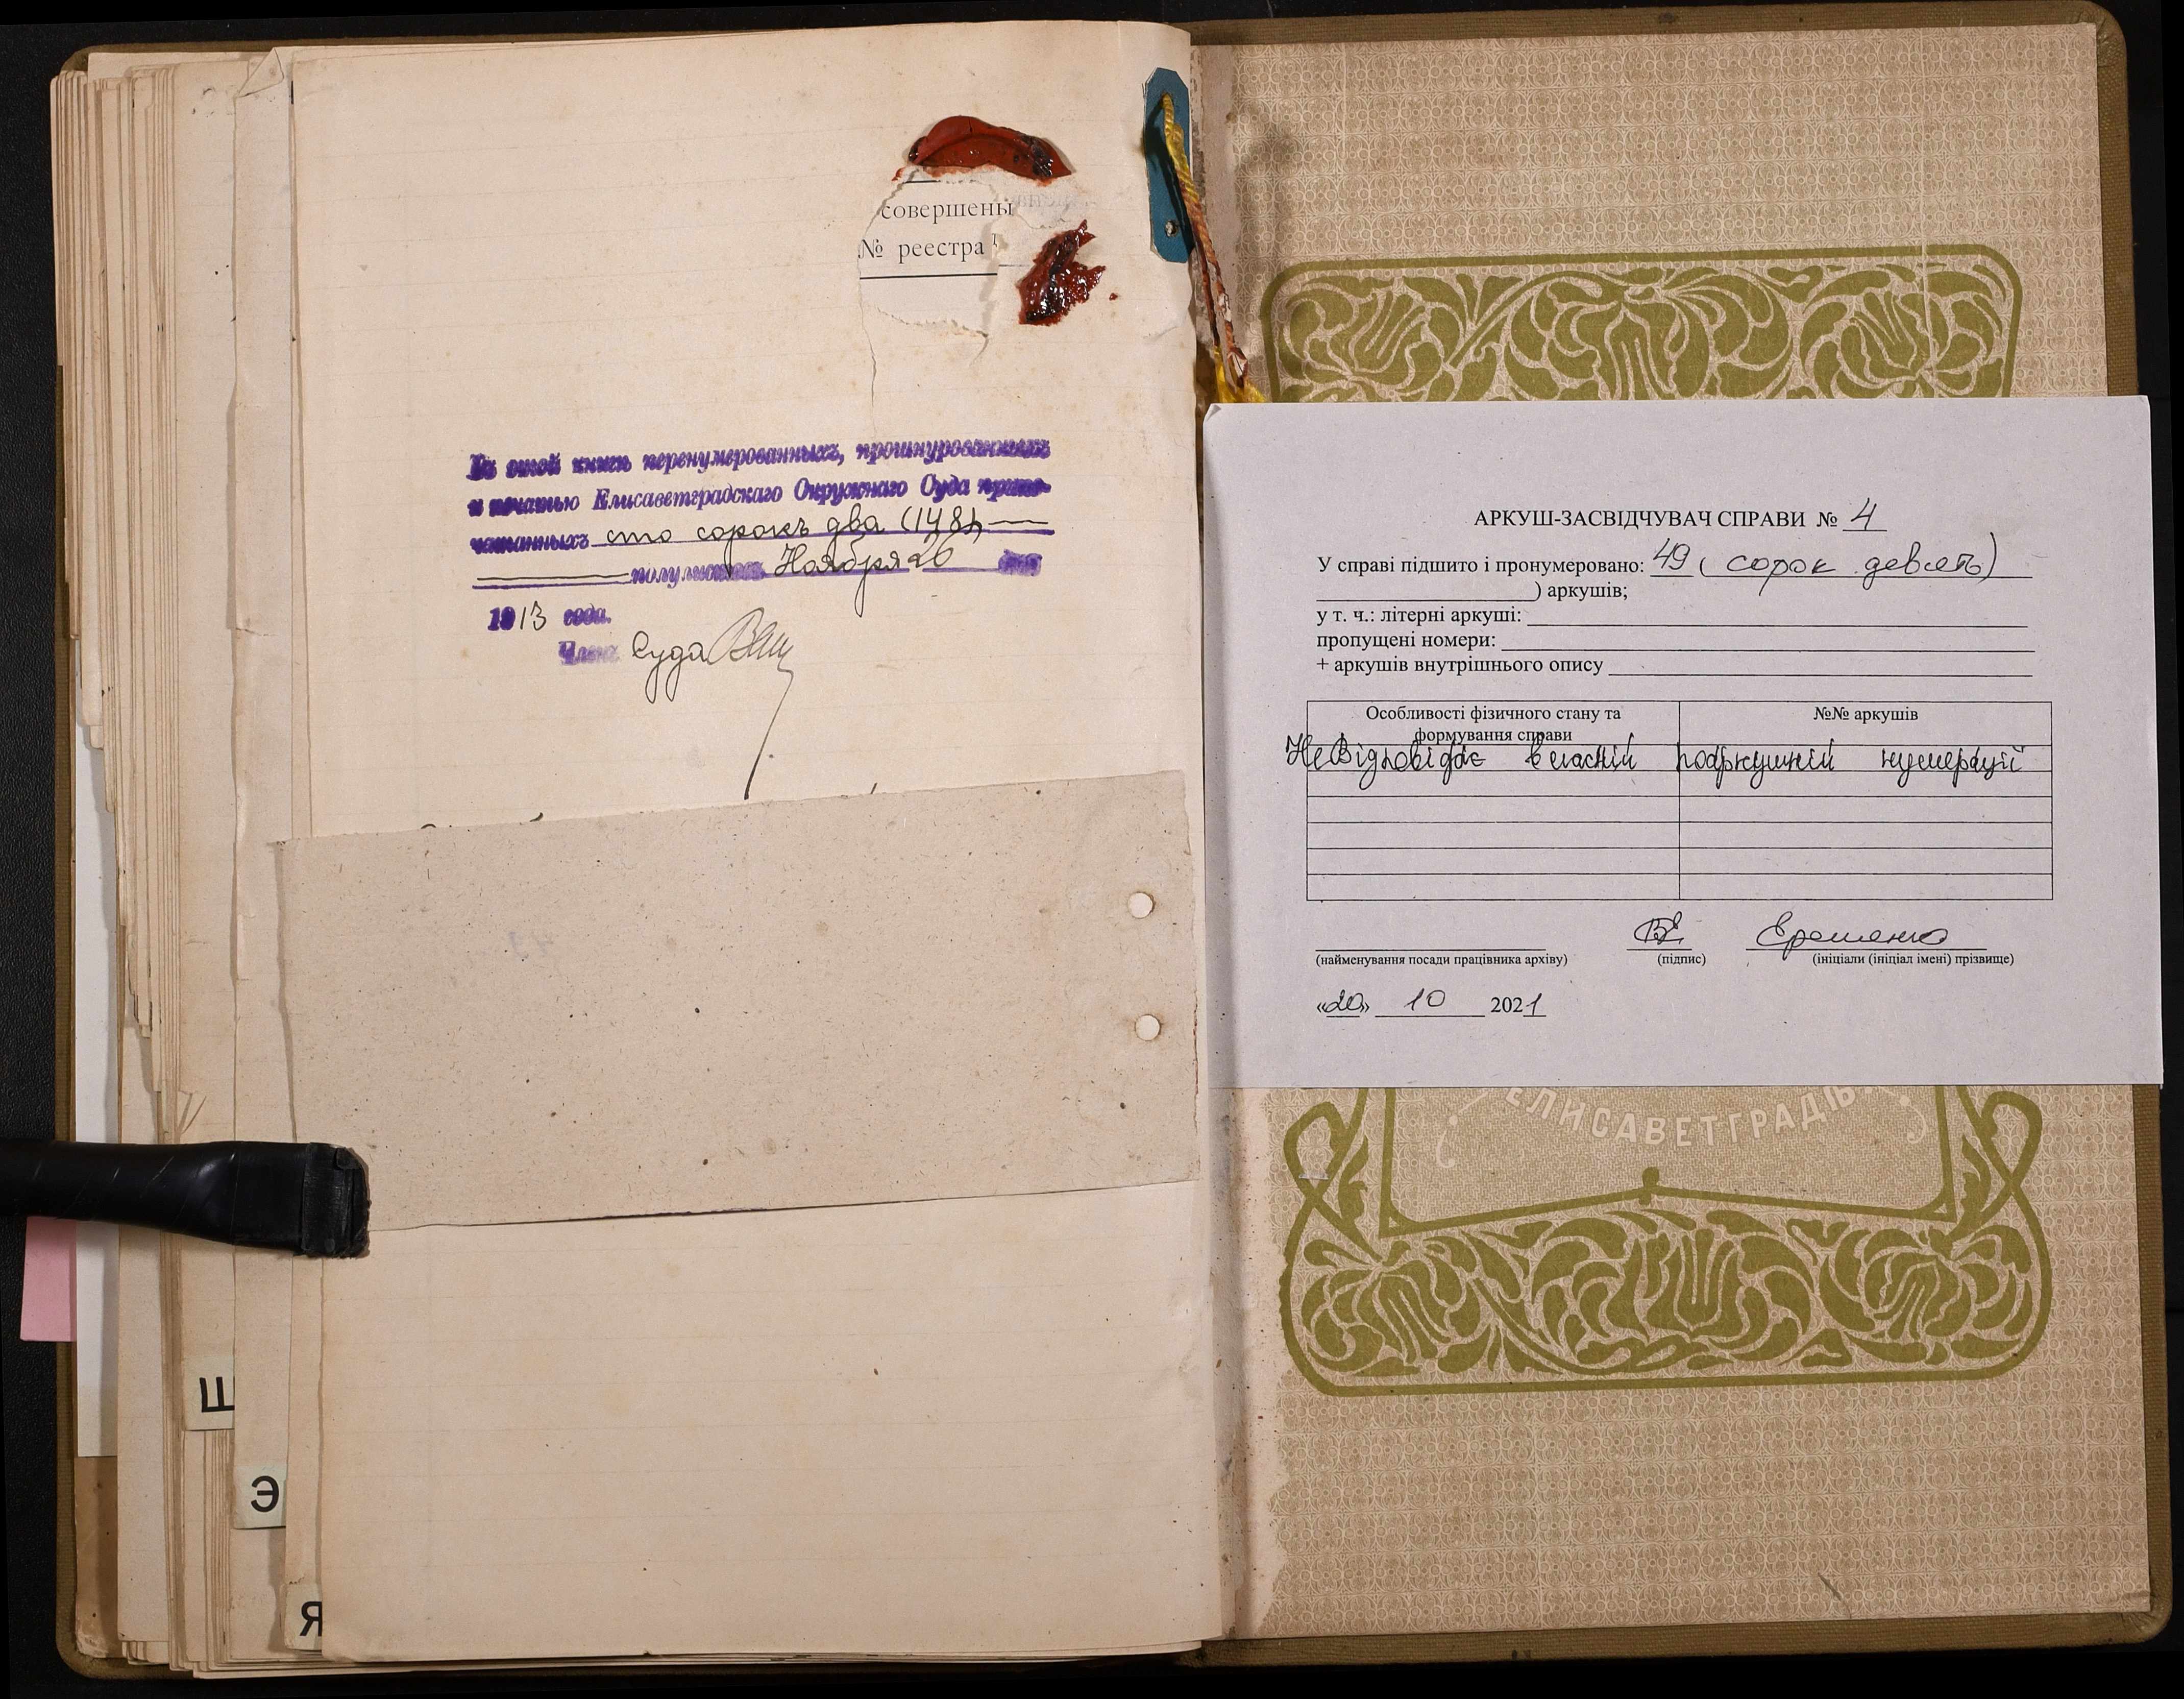 совершены
№ реестра
Въ этой книгѣ перенумерованныхъ, прошнурованныхъ
и печатью Елисаветградскаго Окружнаго Суда припе-
чатанныхъ сто сорокъ два (142)
полулистовъ. Ноября 26 дня
1913 года.
Членъ Суда
Ш
Э
Я
АРКУШ-ЗАСВІДЧУВАЧ СПРАВИ № 4
У справі підшито і пронумеровано: 49 ( сорок девять)
) аркушів;
у т. ч.: літерні аркуші:
пропущені номери:
+ аркушів внутрішнього опису
Особливості фізичного стану та формування справи
№№ аркушів
Не Відповідає власній поаркушній нумерації
ВЄ Єременко
(найменування посади працівника архіву) (підпис) (ініціали (ініціал імені) прізвище)
«20» 10 2021
ЕЛИСАВЕТГРАДѢ